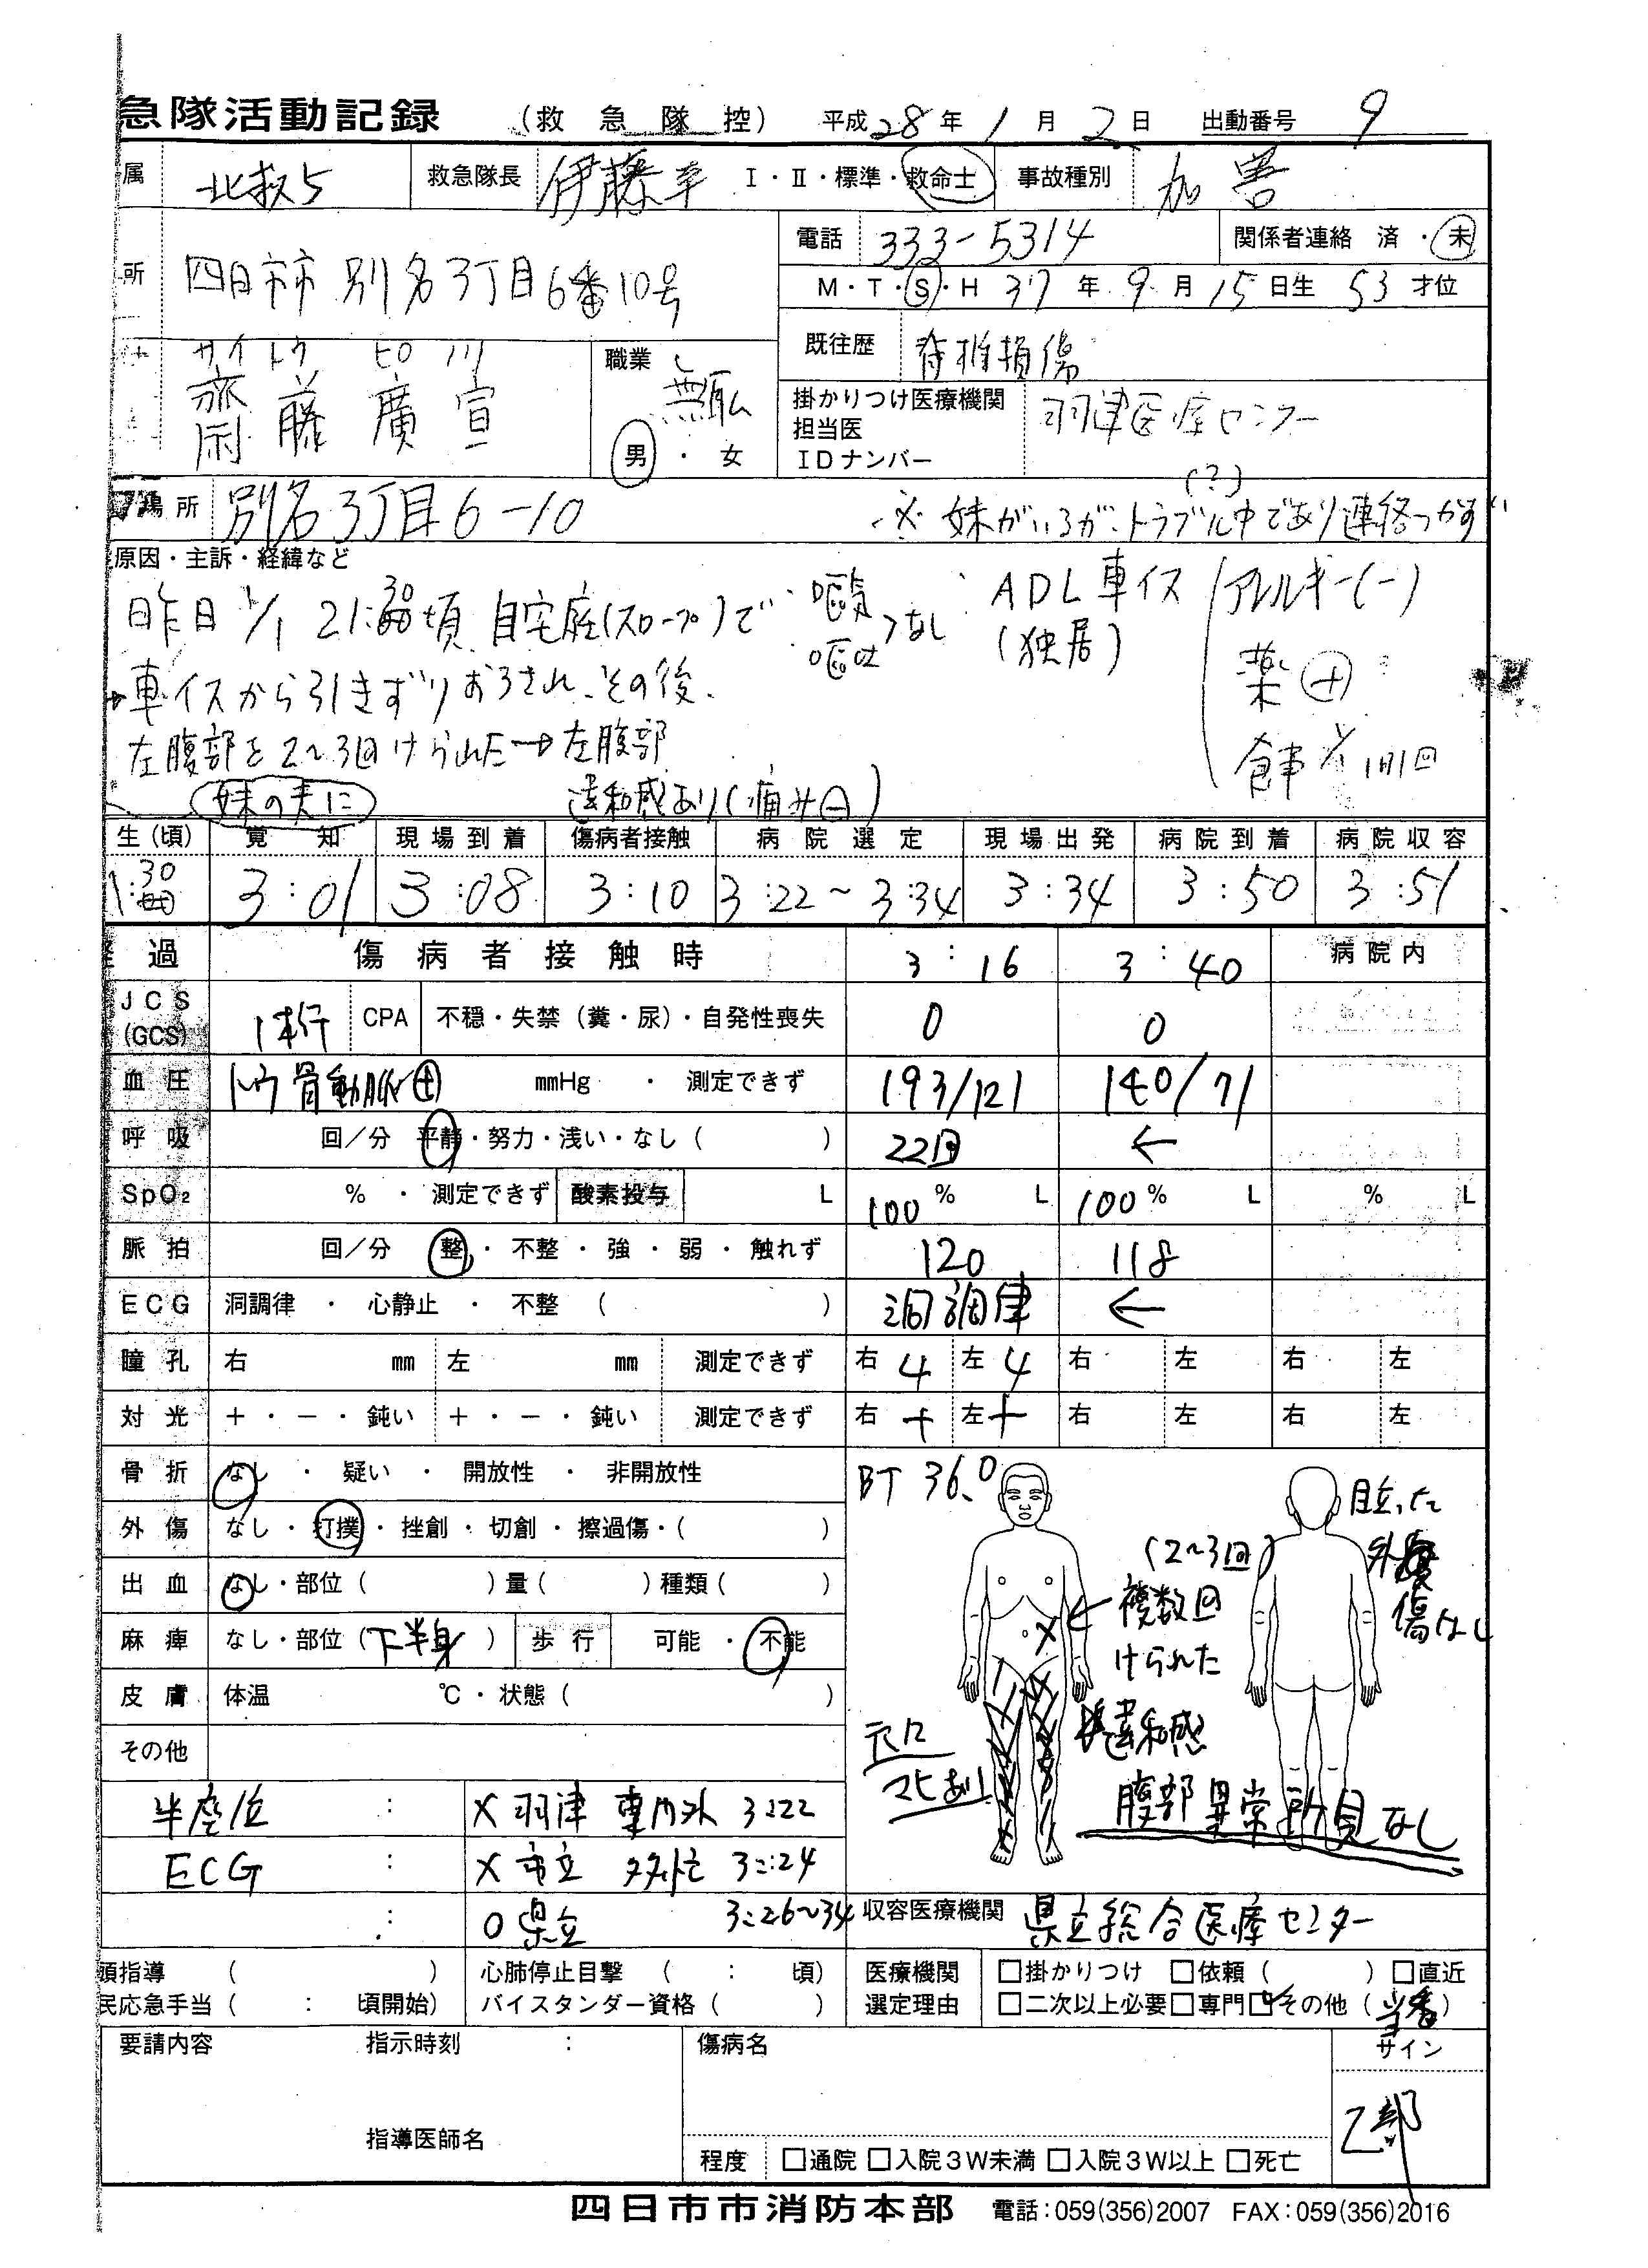 急隊活動記録 (救急隊控) 平成28年1月2日 出動番号 9
属 北救5 救急隊長 伊藤 Ⅰ・Ⅱ・標準・救命士 事故種別 加害
所 四日市市別名3丁目6番10号 電話 333-5314 関係者連絡 済・未
M・T・S・H 37年9月15日生 53才位
サイトウ ヒロ
齋藤廣宣 職業 無職 男・女
既往歴 脊椎損傷
掛かりつけ医療機関 羽津医療センター
担当医
IDナンバー
(?)
場所 別名3丁目6-10 ※妹がいるがトラブル中であり連絡つかず
原因・主訴・経緯など
昨日1/1 21:30頃 自宅庭(スロープ)で 嘔気 嘔吐 なし ADL車イス (独居) アレルギー(-)
車イスから引きずりおろされ、その後、 薬(+)
左腹部を2~3回けられた→左腹部 食事
妹の夫に 違和感あり(痛み(-))
生(頃) 覚知 現場到着 傷病者接触 病院選定 現場出発 病院到着 病院収容
1:30 3:01 3:08 3:10 3:22~3:34 3:34 3:50 3:51
過 傷病者接触時 3:16 3:40 病院内
JCS (GCS) 1桁 CPA 不穏・失禁(糞・尿)・自発性喪失 0 0
血圧 トウ骨動脈(+) mmHg ・ 測定できず 193/121 140/71
呼吸 回/分 平静・努力・浅い・なし( ) 22回 ←
SpO₂ % ・ 測定できず 酸素投与 L 100% L 100% L % L
脈拍 回/分 整・不整・強・弱・触れず 120 118
ECG 洞調律 ・ 心静止 ・ 不整 ( ) 洞調律 ←
瞳孔 右 mm 左 mm 測定できず 右4 左4 右 左 右 左
対光 +・-・鈍い +・-・鈍い 測定できず 右+ 左+ 右 左 右 左
骨折 なし ・ 疑い ・ 開放性 ・ 非開放性
外傷 なし・打撲・挫創・切創・擦過傷・( )
出血 なし・部位( )量( )種類( )
麻痺 なし・部位(下半身) 歩行 可能・不能
皮膚 体温 ℃・状態( )
その他
BT 36.0
目立った
外傷なし
(2~3回)
複数回
けられた
違和感
元に
マヒあり
腹部異常所見なし
半座位 : × 羽津 専門外 3:22
ECG : × 市立 3:24
: ○ 県立 3:26~34 収容医療機関 県立総合医療センター
頭指導 ( ) 心肺停止目撃 ( : 頃) 医療機関 □掛かりつけ □依頼( ) □直近
民応急手当( : 頃開始) バイスタンダー資格( ) 選定理由 □二次以上必要□専門☑その他(当番)
要請内容 指示時刻 : 傷病名 サイン
乙部
指導医師名
程度 □通院 □入院3W未満 □入院3W以上 □死亡
四日市市消防本部 電話:059(356)2007 FAX:059(356)2016